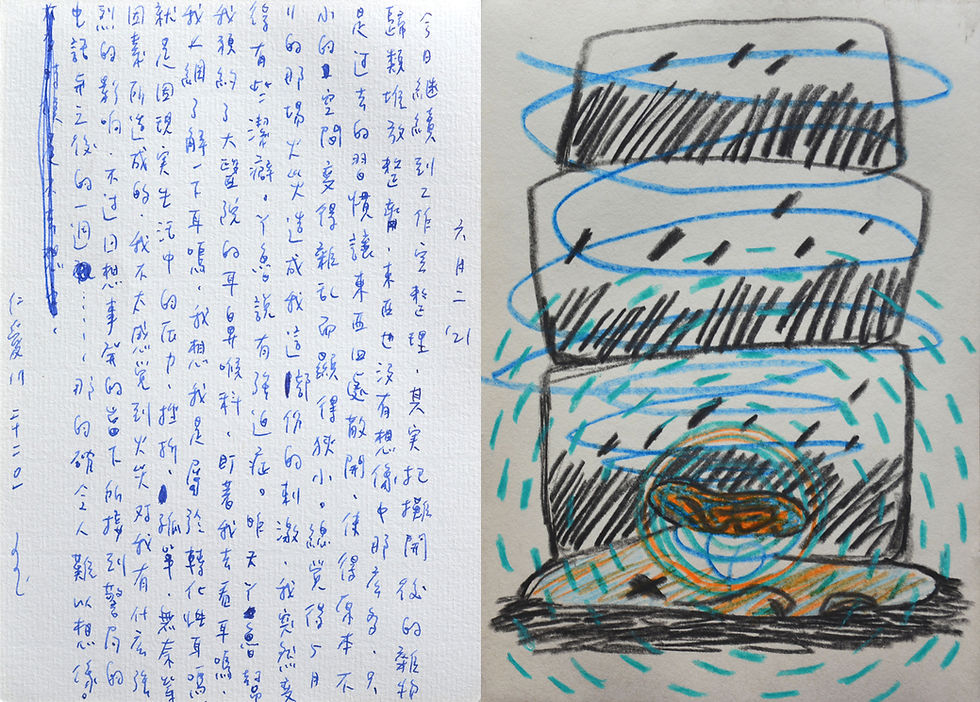 六月二 '21
今日繼續到工作室整理。其實把攤開後的雜物
歸類堆放整齊，東西也沒有想像中那麼多，只
是過去的習慣讓東西四處散開，使得原本不
小的空間變得雜亂而顯得狹小。總覺得5月
11的那場火災造成我這部份的刺激，我突然變
得有些潔癖。丫魚說有強迫症。昨天丫魚幫
我預約了大醫院的耳鼻喉科，盯著我去看耳鳴，
我上網了解一下耳鳴，我想我是屬於轉化性耳鳴
就是因現實生活中的压力，挫折，孤單，無奈等
因素所造成的，我不太感覺到火災對我有什麼強
烈的影响，不过回想事發的當下所接到警局的
电話再之後的一週……，那的確令人難以想像。
仁愛17 二十二01